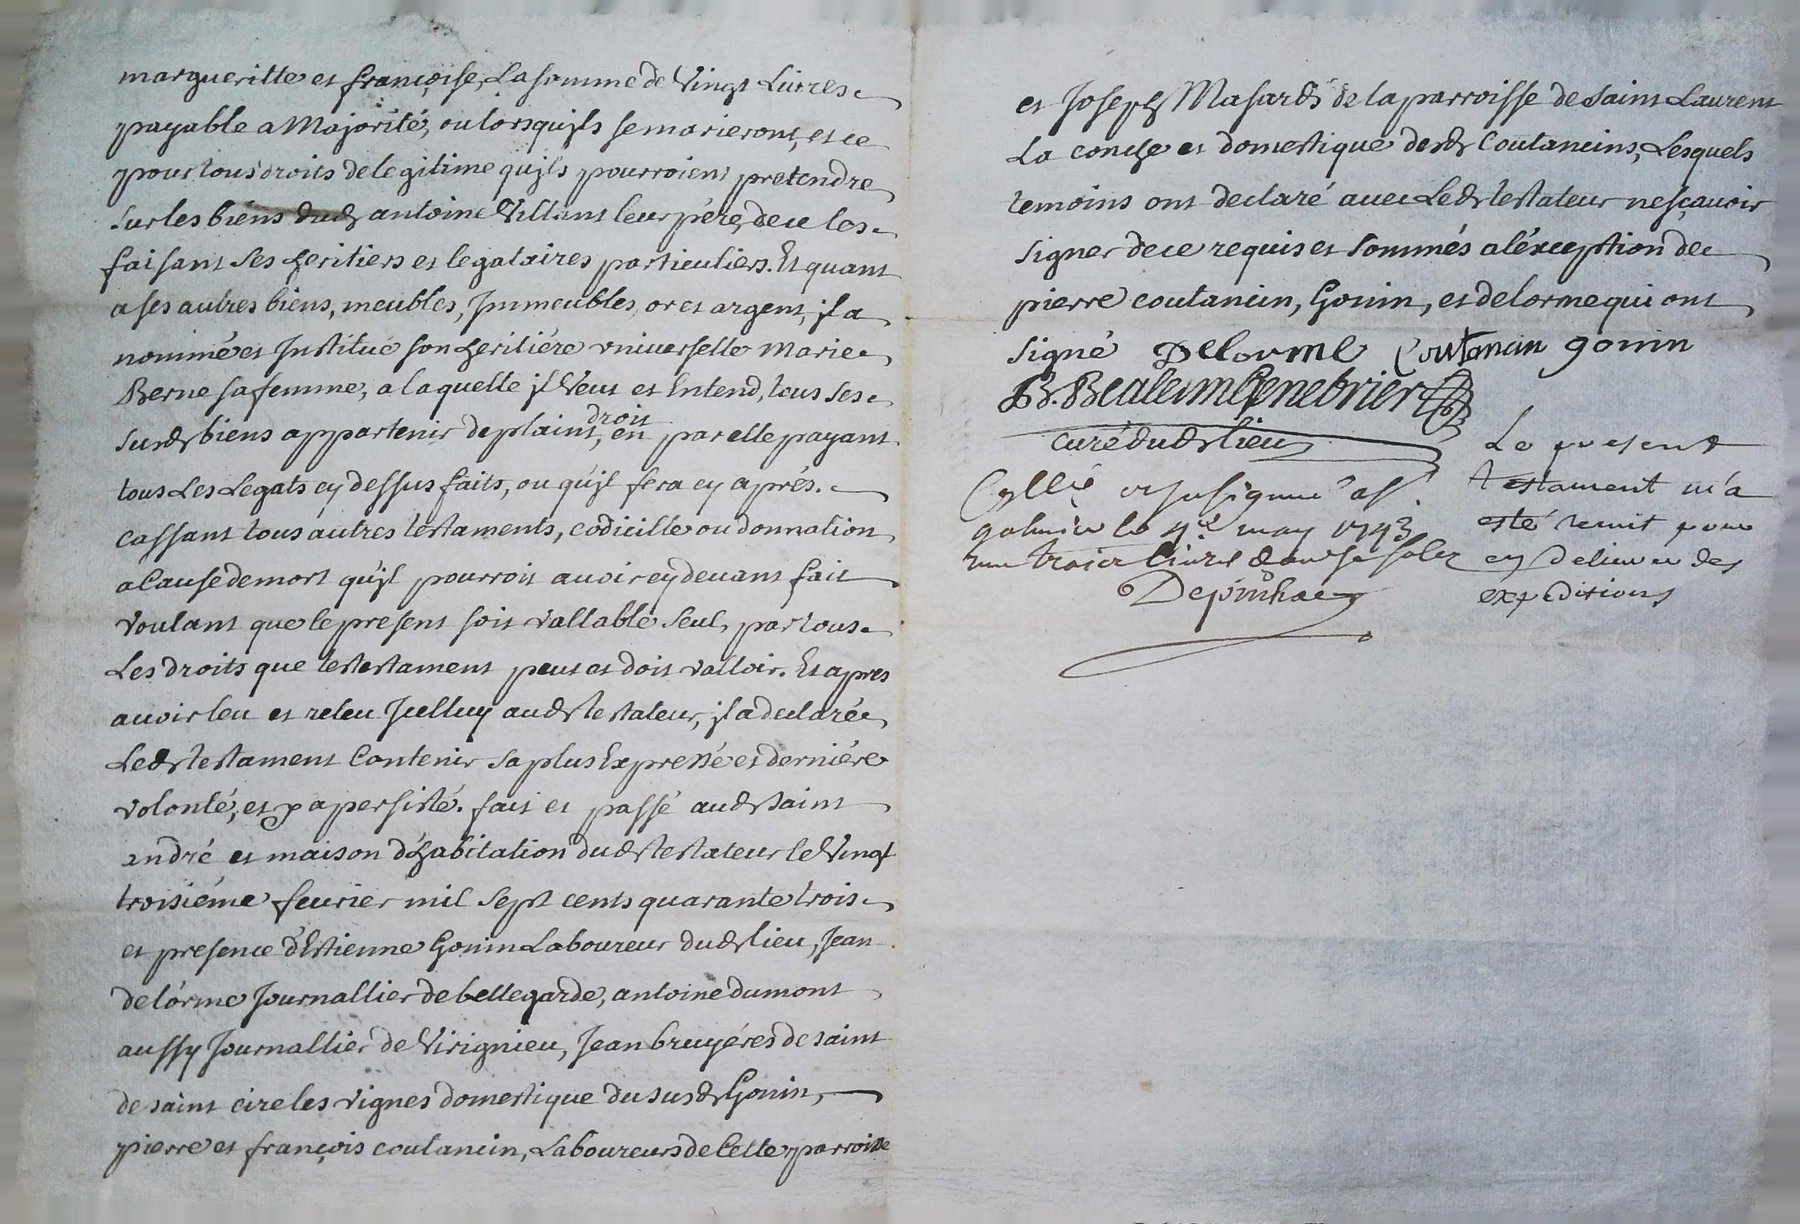 margueritte et françoise, La somme de Vingt Livres
payable a Majorité, ou lorsquils se marieront, et ce
pour tous droits de legitime quils pourroient pretendre
sur les biens dud antoine Villant leur père, de ce les
faisant ses heritiers et legataires particuliers. Et quant
a ses autres biens, meubles, Immeubles, or et argent, il a
nommé et Institué son heritiére universelle Marie
Berne sa femme, a laquelle il Veut et Entend, tous ses
susd biens appartenir de plaint, droit en par elle payant
tous Les Legats cy dessus faits, ou quil fera cy aprés.
cassant tous autres testaments, codicille ou donnation
a Cause de mort quil pourroit avoir cy devant fait
voulant que le present soit vallable seul, par tous
Les droits que testestament peut et doit valloir. Et apres
avoir leu et releu Icelluy aud testateur, il a declaré
Led testament Contenir sa plus Expresse et derniére
volonté, et y a persisté. fait et passé aud saint
andré et maison d'habitation dud testateur le Vingt
troisiéme feurier mil sept cents quarante trois
et presence d'Estienne Gonin Laboureur dud lieu, Jean
delorme Journallier de bellegarde, antoine dumont
aussy Journallier de Virignieu, Jean bruyéres de saint
de saint cire les vignes domestique du susd Gonin,
pierre et françois coutancin, Laboureurs de Cette parroisse
et Joseph Masard de la parroisse de saint Laurent
La conche et domestique desd Coutancins, Lesquels
temoins ont declaré avec Led testateur ne sçavoir
signer de ce requis et sommés a léxception de
pierre coutancin, Gonin, et delorme qui ont
signé Delorme Coutancin gonin
curé dud lieu
Le present
testament m'a
esté remit pour
en delivrer des
expeditions
le 4e may 1743